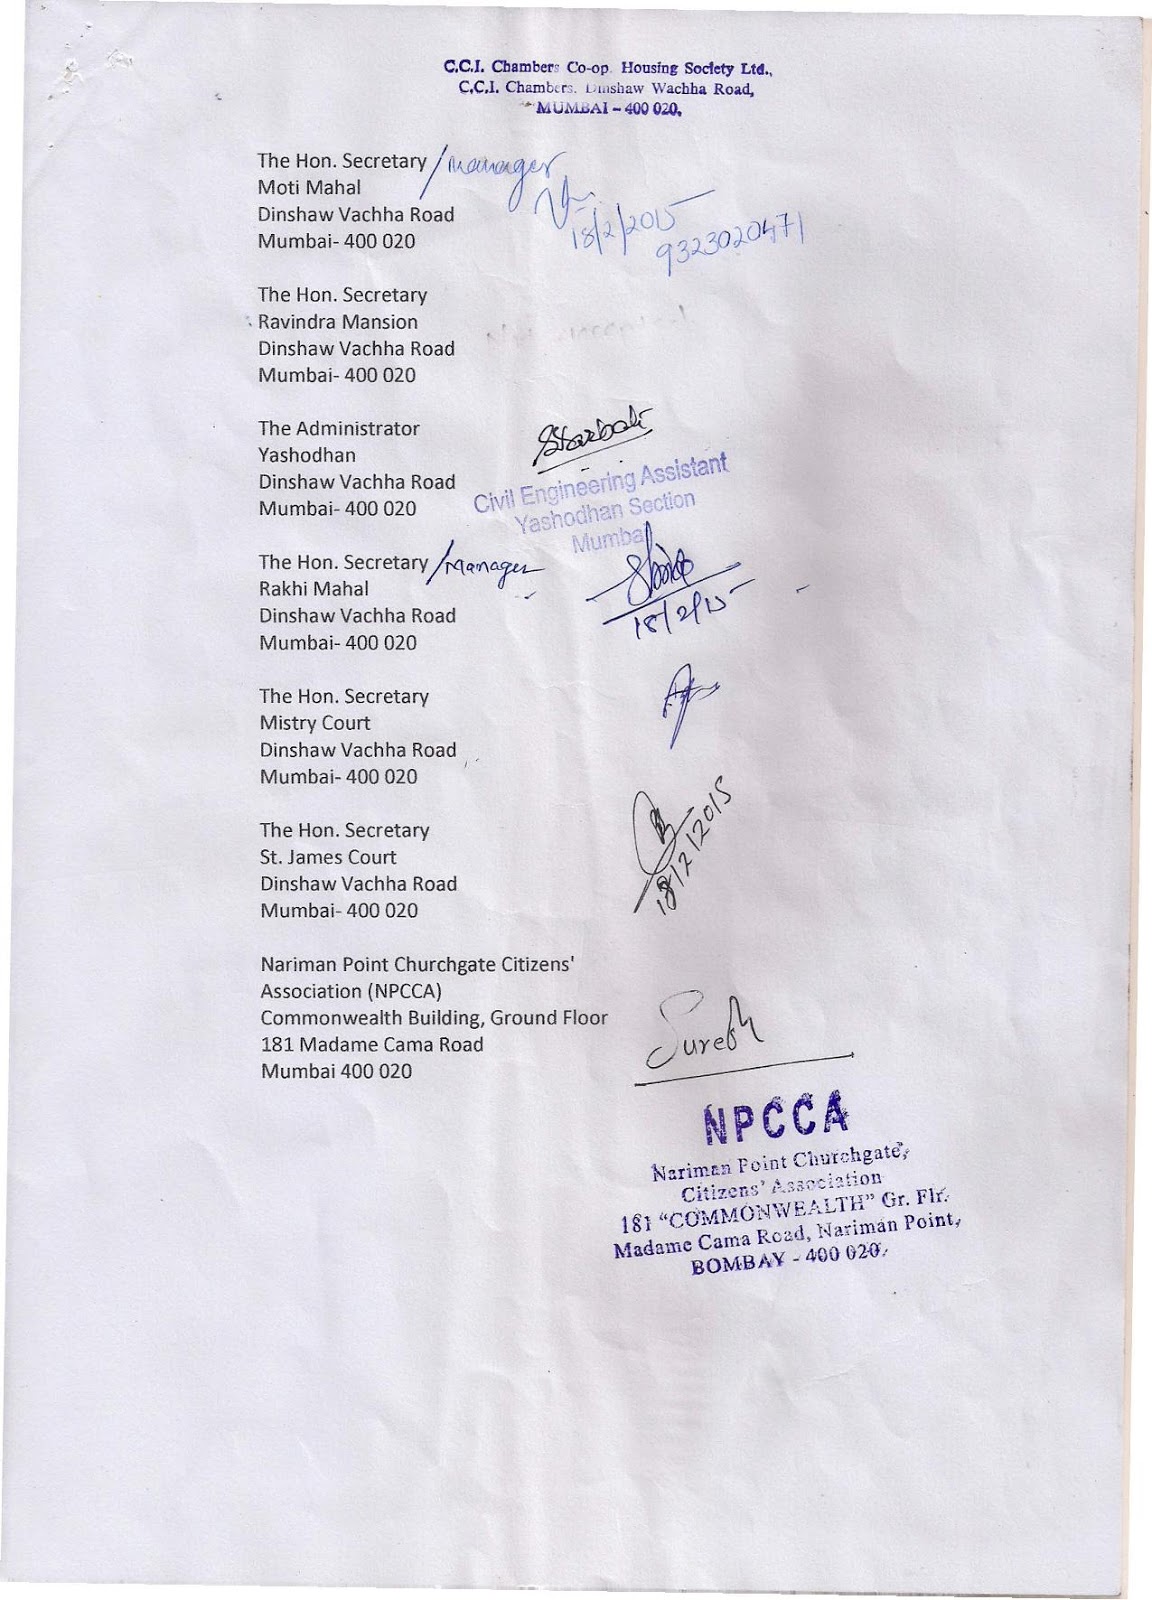 C.C.I. Chambers Co-op. Housing Society Ltd.,
C.C.I. Chambers. Dinshaw Wachha Road,
MUMBAI - 400 020.
The Hon. Secretary /manager
Moti Mahal
Dinshaw Vachha Road
Mumbai- 400 020
18/2/2015
9323020471
The Hon. Secretary
Ravindra Mansion
Dinshaw Vachha Road
Mumbai- 400 020
The Administrator
Yashodhan
Dinshaw Vachha Road
Mumbai- 400 020
Civil Engineering Assistant
Yashodhan Section
Mumbai
The Hon. Secretary /Manager
Rakhi Mahal
Dinshaw Vachha Road
Mumbai- 400 020
18/2/15
The Hon. Secretary
Mistry Court
Dinshaw Vachha Road
Mumbai- 400 020
The Hon. Secretary
St. James Court
Dinshaw Vachha Road
Mumbai- 400 020
18/2/2015
Nariman Point Churchgate Citizens'
Association (NPCCA)
Commonwealth Building, Ground Floor
181 Madame Cama Road
Mumbai 400 020
Suresh
NPCCA
Nariman Point Churchgate,
Citizens' Association
181 "COMMONWEALTH" Gr. Flr.
Madame Cama Road, Nariman Point,
BOMBAY - 400 020.